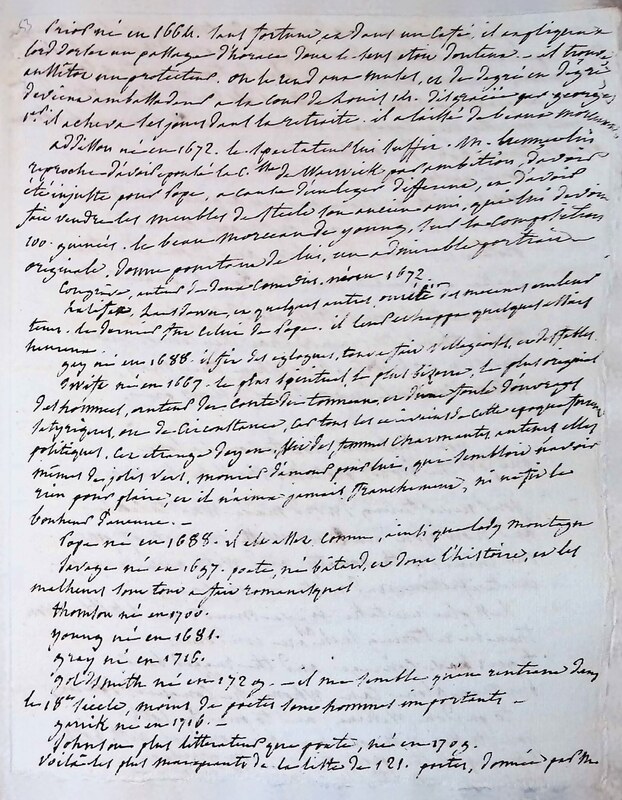 Prior né en 1664. sans fortune, et dans un café, il expliqua a
lord dorset un passage d'horace dont le sens etoit douteux — il trouva
aussitot un protecteur. on le rend aux muses, et de degré en degré
devient ambassadeur a la cour de louis 14. disgracié par georges
1er. il acheva ses jours dans la retraite. il a laissé de beaux morceaux
addisson né en 1672. le spectateur lui suffit. M.
reproche d'avoir epousé la Ctesse de Warwick par ambition, d'avoir
été injuste pour Pope, a cause d'eglises differentes, et d'avoir
fait vendre les meubles de steele son ancien ami, qui lui devoit
100. guinées. le beau morceau de young, sur la composition
originale, donne pourtant de lui, un admirable portrait —
Congrève, auteur de douze Comedies, né en 1672.
halifax, Lansdown, et quelques autres, ont été des mecenes et auteurs
le dernier fut celui de Pope. il leur echappe quelques
heureux.
gay né en 1688. il fit des eglogues, et des fables.
Swift né en 1667. le plus spirituel, le plus bizarre, le plus original
des hommes, auteur du conte du tonneau, et d'une foule d'ouvrages
satyriques, ou de circonstance, car tous les ecrivains de cette epoque furent
politiques. Cet etrange doyen, vit des femmes charmantes, auteurs elles
mêmes de jolis vers, mourir d'amour pour lui, qui sembloit n'avoir
rien pour plaire, et il n'aima jamais, franchement, ni ne fit le
bonheur d'aucune. —
Pope né en 1688. il est assez connu, ainsi que lady montague
savage né en 1697. poete, né bâtard, et dont l'histoire, et les
malheurs sont tout a fait romanesques
thomson né en 1700.
young né en 1681.
gray né en 1716.
goldsmith né en 1729. — il me semble qu'en rentrant dans
le 18e. siecle, moins de poetes sont hommes importants —
garrik né en 1716. —
Johnson plus litterateur que poete, né en 1709.
voilà les plus marquants de la liste de 121. poetes, donnée par M